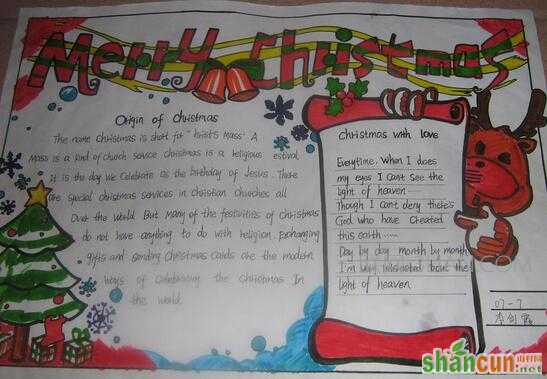 Merry Christmas
Origin of Christmas
The name Christmas is short for "Christ's Mass". A
Mass is a kind of church service christmas is a religious estival
it is the day we Celebrate as the birthday of Jesus. There
are special christmas services in Christian Churches all
Over the world. But Many of the festivities of Christmas
do not have anything to do with religion. Exchanging
gifts and sending Christmas Cards are the modern
ways of Celebrating the Christmas In
the world.
Christmas with love
Everytime. When I does
my eyes I Can't See the
light of heaven
Though I can't deny there's
God who have Created
this earth
Day by day month by month
I'm why bout the
light of heaven
07-7
李剑
shancun
.net